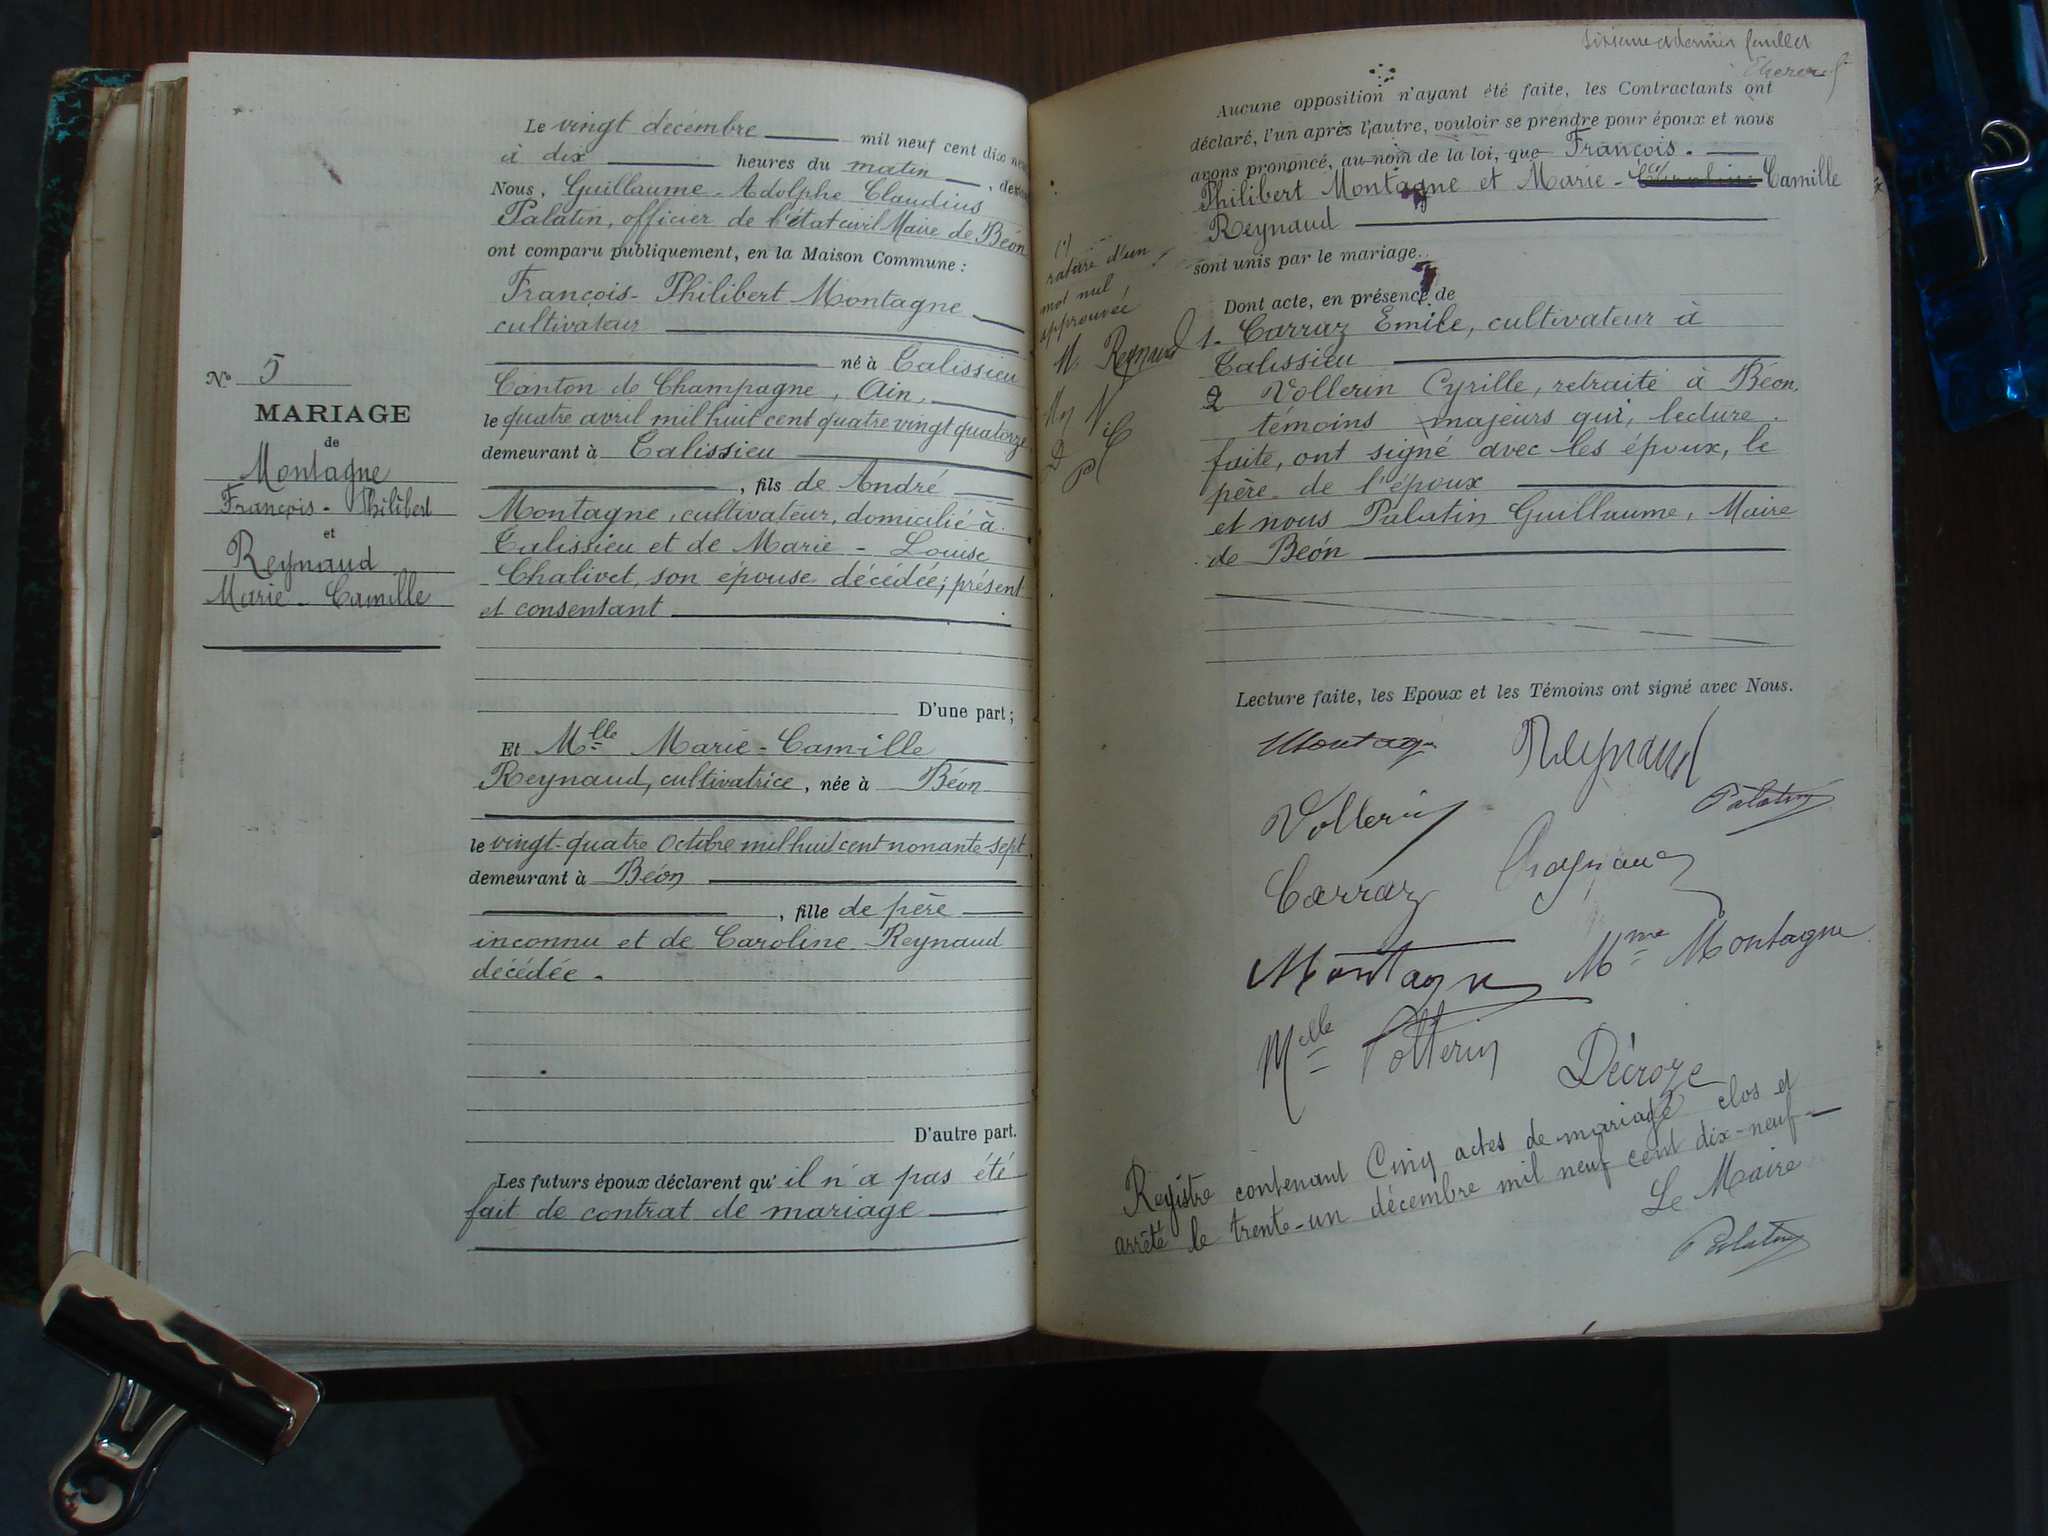 Le vingt décembre mil neuf cent dix neuf
à dix heures du matin, devant
Nous, Guillaume-Adolphe Claudius
Palatin, officier de l'état civil Maire de Béon
ont comparu publiquement, en la Maison Commune :
François-Philibert Montagne
cultivateur
né à Talissieu
Canton de Champagne, Ain,
le quatre avril mil huit cent quatre vingt quatorze
demeurant à Talissieu
, fils de André
Montagne, cultivateur, domicilié à
Talissieu et de Marie-Louise
Chalivet, son épouse décédée; présent
et consentant
D'une part ;
Et Mlle Marie-Camille
Reynaud, cultivatrice, née à Béon
le vingt-quatre Octobre mil huit cent nonante sept,
demeurant à Béon
, fille de père
inconnu et de Caroline Reynaud
décédée.
D'autre part.
Les futurs époux déclarent qu'il n'a pas été
fait de contrat de mariage
No 5
MARIAGE
de
Montagne
François-Philibert
et
Reynaud
Marie-Camille
Sixième et dernier feuillet
Aucune opposition n'ayant été faite, les Contractants ont
déclaré, l'un après l'autre, vouloir se prendre pour époux et nous
avons prononcé, au nom de la loi, que François-
Philibert Montagne et Marie-Caroline (1) Camille
Reynaud
sont unis par le mariage.
Dont acte, en présence de
1- Carraz Emile, cultivateur à
Talissieu
2 Vollerin Cyrille, retraité à Béon,
témoins majeurs qui, lecture
faite, ont signé avec les époux, le
père de l'époux
et nous Palatin Guillaume, Maire
de Béon
(1)
rature d'un
mot nul,
approuvée
M. Reynaud
M V
D C
P
Lecture faite, les Epoux et les Témoins ont signé avec Nous.
Montagne Reynaud
Vollerin Palatin
Carraz
Montagne Mme Montagne
Melle Vollerin Décroze
Registre contenant Cinq actes de mariage clos et
arrêté le trente-un décembre mil neuf cent dix-neuf
Le Maire
Palatin